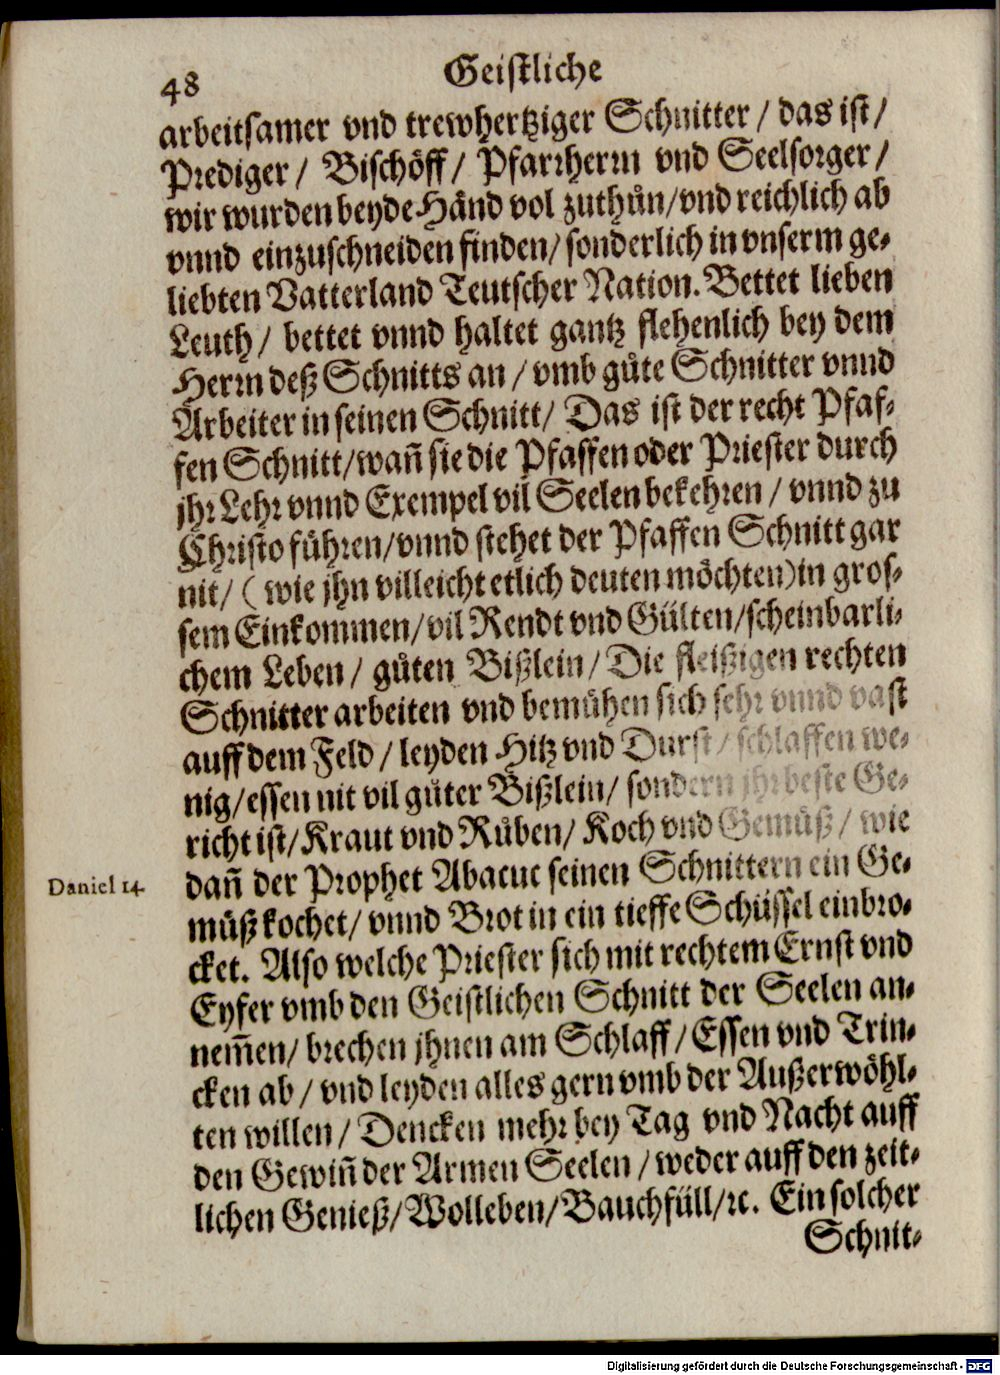 48 Geistliche
arbeitsamer vnd trewhertziger Schnitter / das ist /
Prediger / Bischöff / Pfarrherrn vnd Seelsorger /
wir wurden beyde Händ vol zuthůn / vnd reichlich ab
vnnd einzuschneiden finden / sonderlich in vnserm ge-
liebten Vatterland Teutscher Nation. Bettet lieben
Leuth / bettet vnnd haltet gantz flehenlich bey dem
Herrn deß Schnitts an / vmb gůte Schnitter vnnd
Arbeiter in seinen Schnitt / Das ist der recht Pfaf-
fen Schnitt / wañ sie die Pfaffen oder Priester durch
jhr Lehr vnnd Exempel vil Seelen bekehren / vnnd zu
Christo führen / vnnd stehet der Pfaffen Schnitt gar
nit / ( wie jhn villeicht etlich deuten möchten) in gros-
sem Einkommen / vil Rendt vnd Gülten / scheinbarli-
chem Leben / gůten Bißlein / Die fleißigen rechten
Schnitter arbeiten vnd bemühen sich sehr vnnd vast
auff dem Feld / leyden Hitz vnd Durst / schlaffen we-
nig / essen nit vil gůter Bißlein / sondern jhr beste Ge-
richt ist / Kraut vnd Růben / Koch vnd Gemüß / wie
dañ der Prophet Abacuc seinen Schnittern ein Ge-
Daniel 14
müß kochet / vnnd Brot in ein tieffe Schüssel einbro-
cket. Also welche Priester sich mit rechtem Ernst vnd
Eyfer vmb den Geistlichen Schnitt der Seelen an-
nem̃en / brechen jhnen am Schlaff / Essen vnd Trin-
cken ab / vnd leyden alles gern vmb der Außerwöhl-
ten willen / Dencken mehr bey Tag vnd Nacht auff
den Gewiñ der Armen Seelen / weder auff den zeit-
lichen Genieß / Wolleben / Bauchfüll / ꝛc. Ein solcher
Schnit-
Digitalisierung gefördert durch die Deutsche Forschungsgemeinschaft - DFG